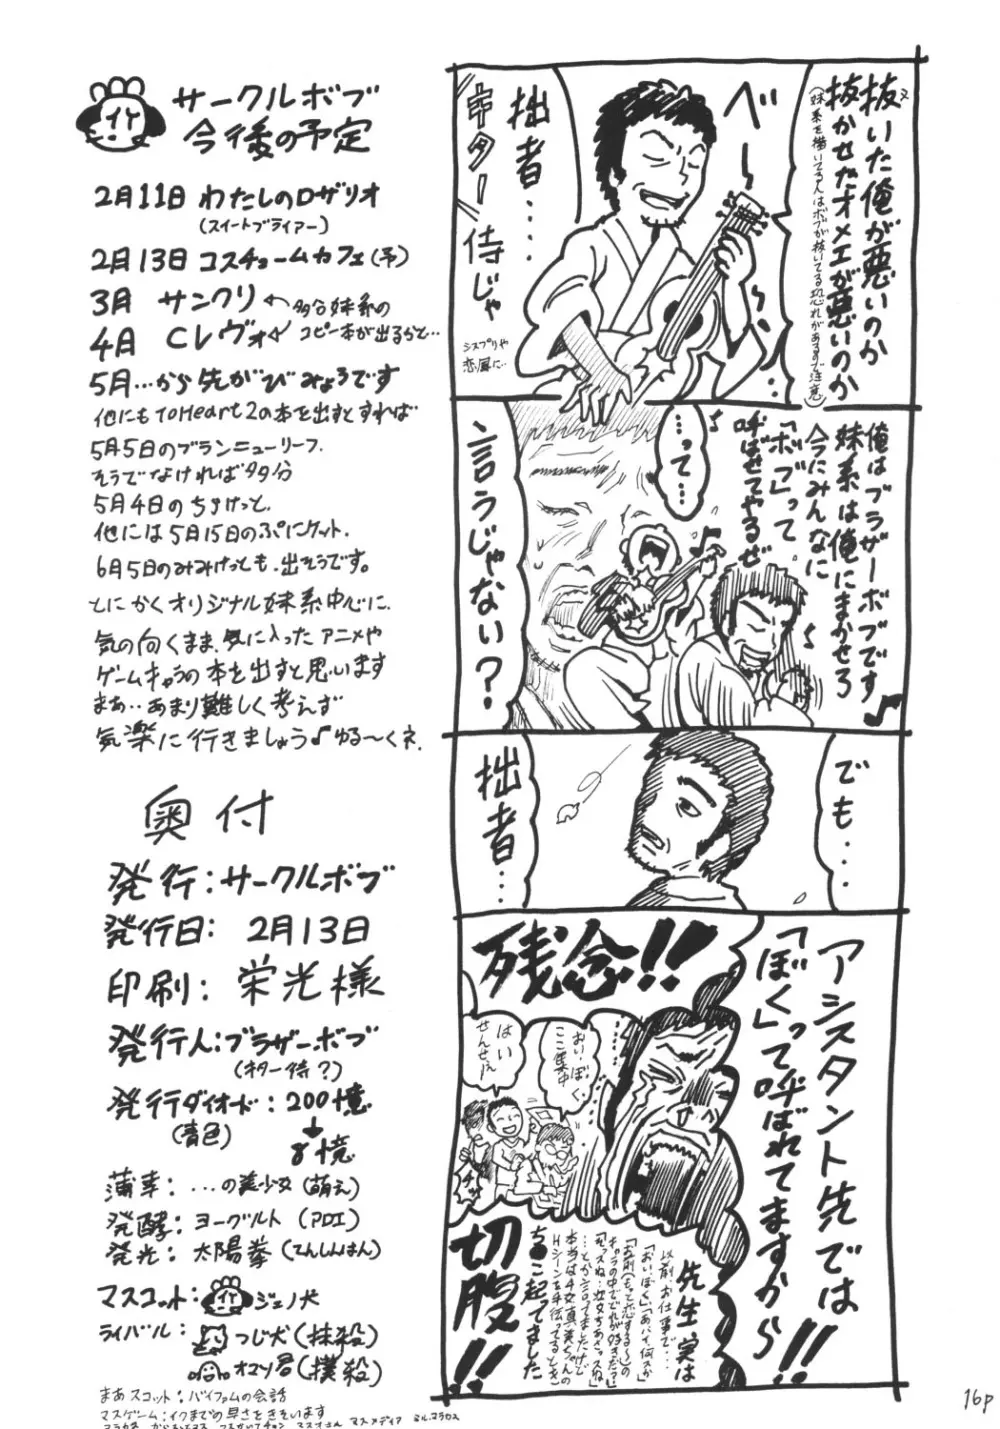 サークルボブ
今後の予定
2月11日 わたしのロザリオ
(スイートブライアー)
2月13日 コスチュームカフェ(予)
3月 サンクリ ←多分妹系の
4月 Cレヴォ← コピー本が出るかと…
5月…から先がびみょうです
他にもToHeart2の本を出すとすれば
5月5日のブランニューリーフ.
そうでなければ多分
5月4日のちょけっと.
他には5月15日のぷにケット.
6月5日のみみけっとも.出そうです。
とにかくオリジナル妹系中心に.
気の向くまま.気に入ったアニメや
ゲームキャラの本を出すと思います
まぁ…あまり難しく考えず
気楽に行きましょう♪ゆる〜くネ.
奥付
発行:サークルボブ
発行日: 2月13日
印刷: 栄光様
発行人:ブラザーボブ
(ギター侍?)
発行ダイオード:200憶
(青色) ↓
8憶
薄幸: …の美少女(萌え)
発酵: ヨーグルト (PDI)
発光: 太陽拳(てんしんはん)
マスコット: ジェノ犬
ライバル: つじ犬(抹殺)
オマソ君(撲殺)
まあスコット:バイファムの会話
マスゲーム:イクまでの早さをきそいます
抜いた俺が悪いのか
抜かせたオメエが悪いのか
(妹系を描いてる人はボブが抜いてる恐れがあるので注意)
べ〜〜〜ン…
拙者…
ギター侍じゃ
シスプリや
恋風に…
俺はブラザーボブです
妹系は俺にまかせろ
今にみんなに
「ボブ」って
呼ばせてやるぜ
…って…
言うじゃない?
でも…
拙者…
アシスタント先では
「ぼく」って呼ばれてますから!!
残念!!
おい、ぼく、
ここ集中
はい
せんせぇ
先生実は
以前、お仕事で…
切腹!!
ち●こ起ってました
16P